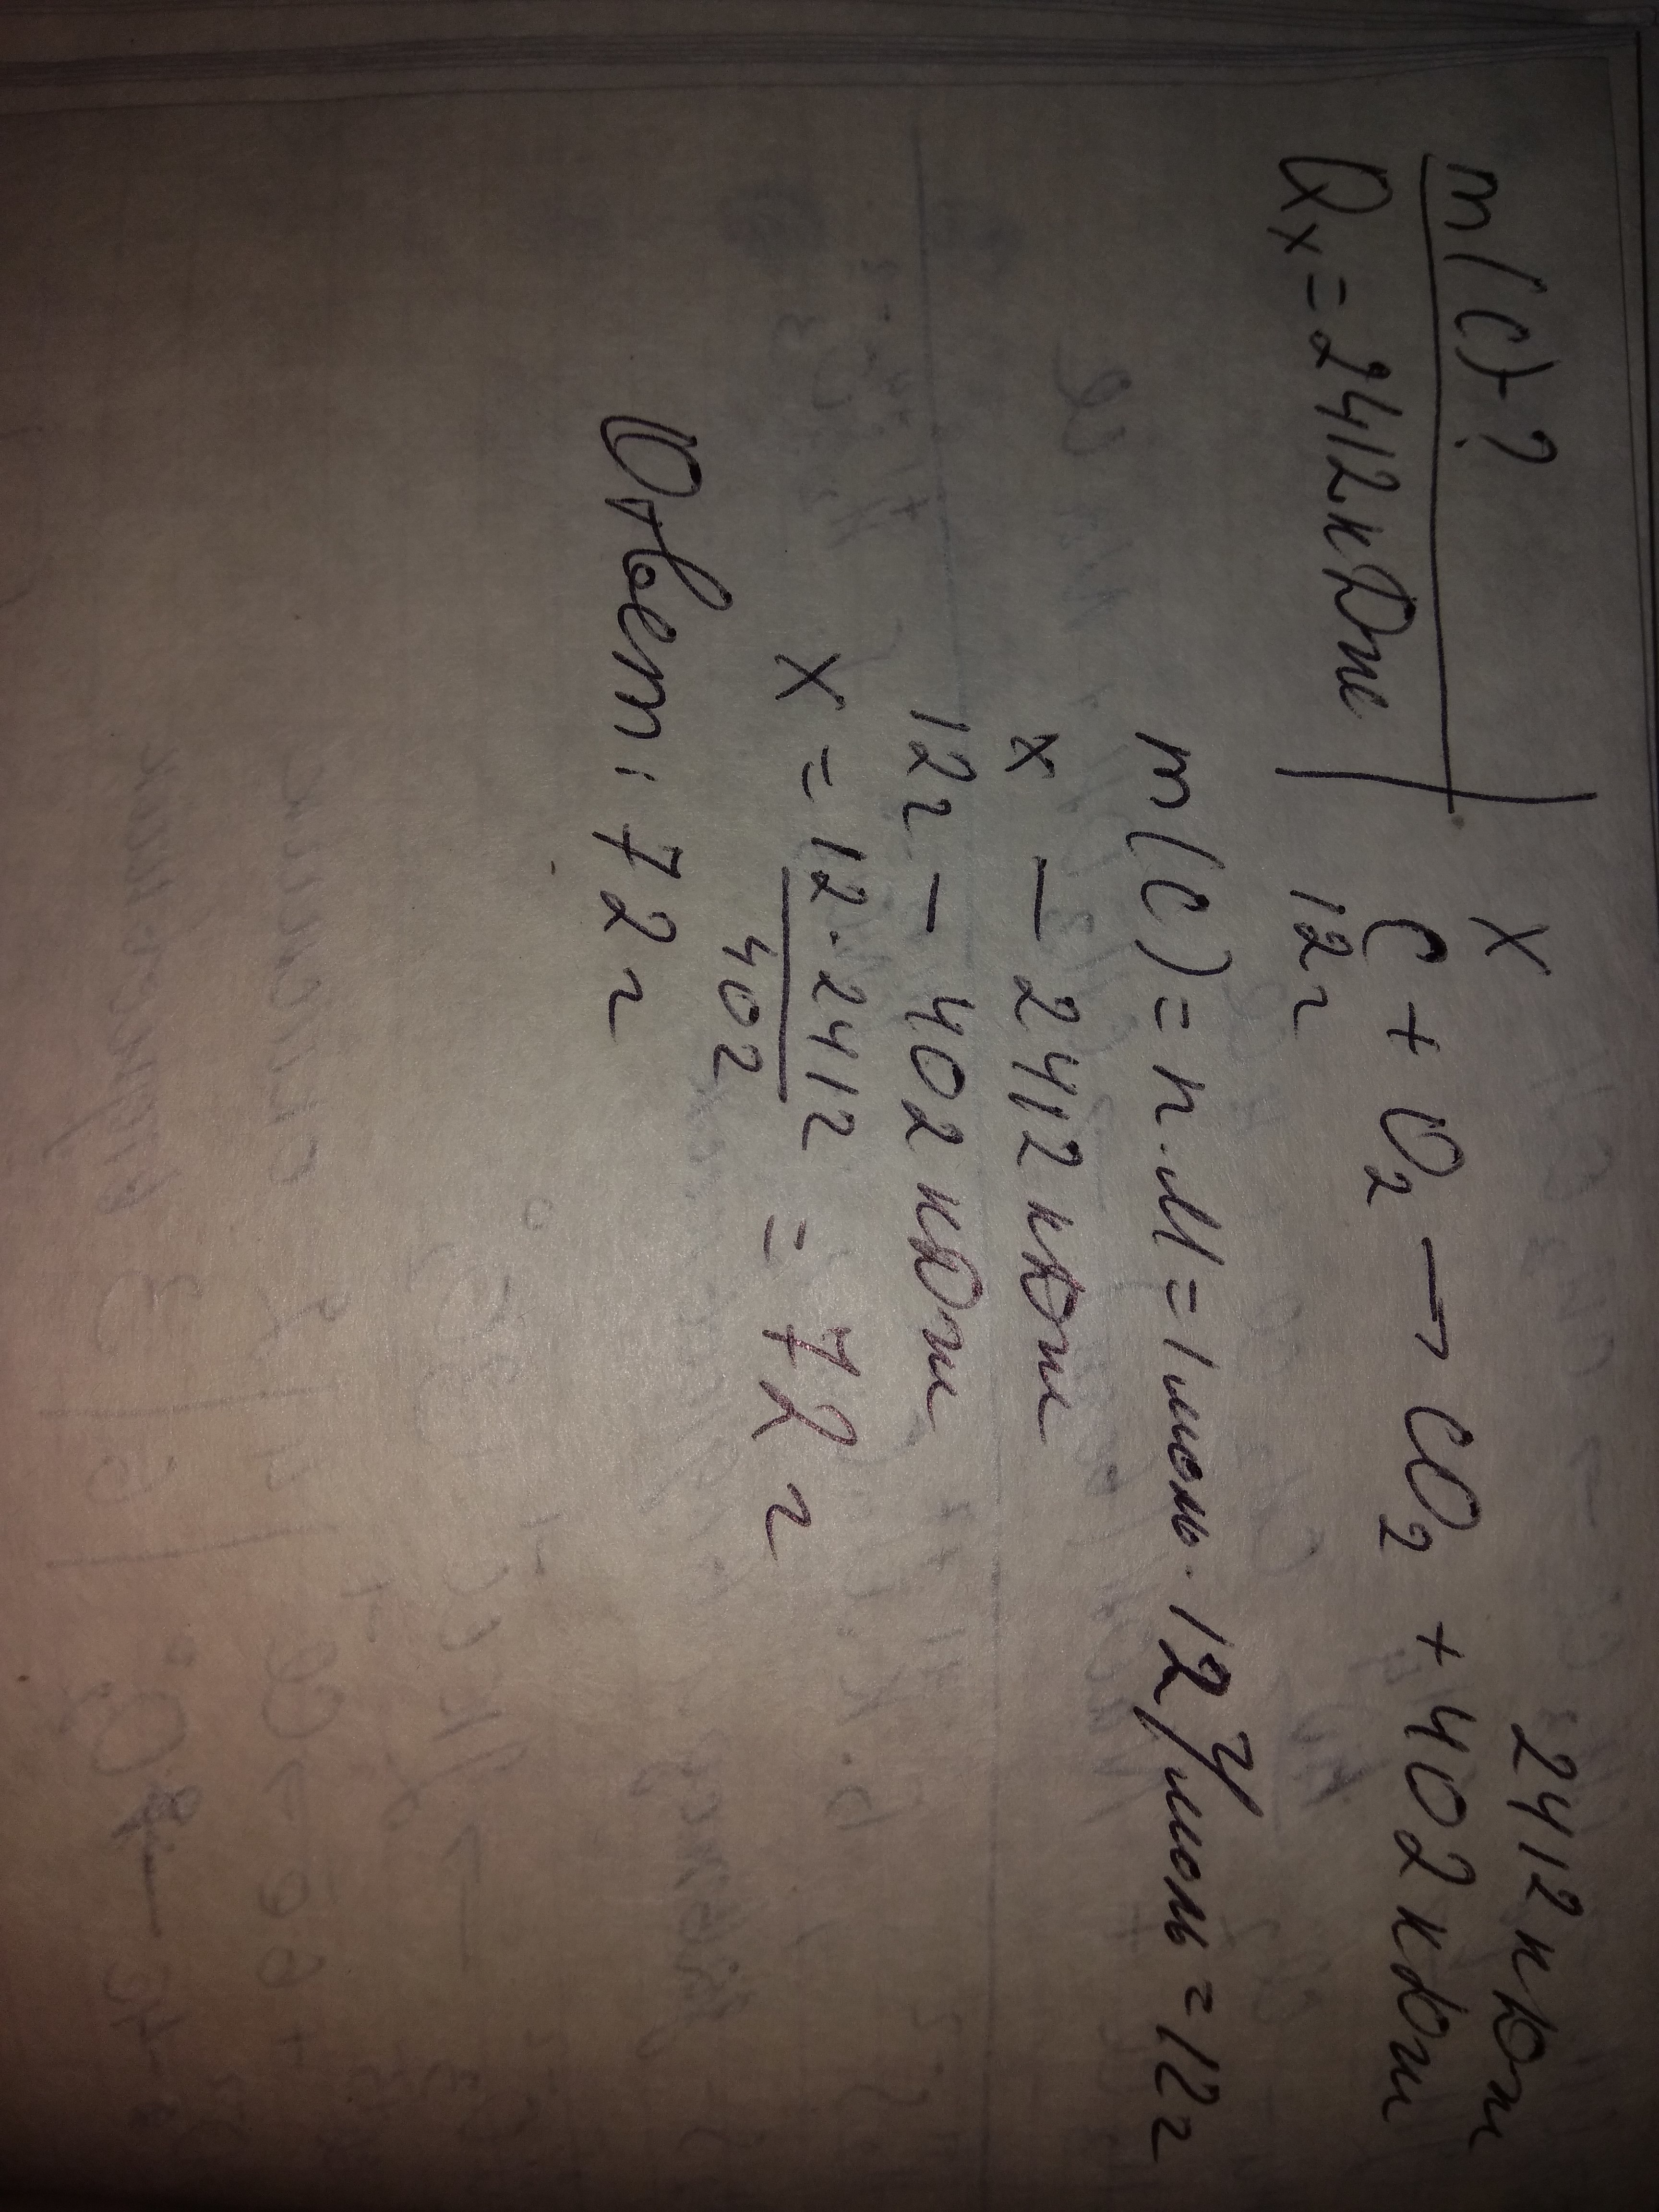 m(C)-?
Qx = 2412 кДж
x 2412 кДж
C + O₂ → CO₂ + 402 кДж
12г
m(C) = n · M = 1 моль · 12 г/моль = 12 г
x – 2412 кДж
12г – 402 кДж
x = 12 · 2412 / 402 = 72 г
Ответ: 72 г